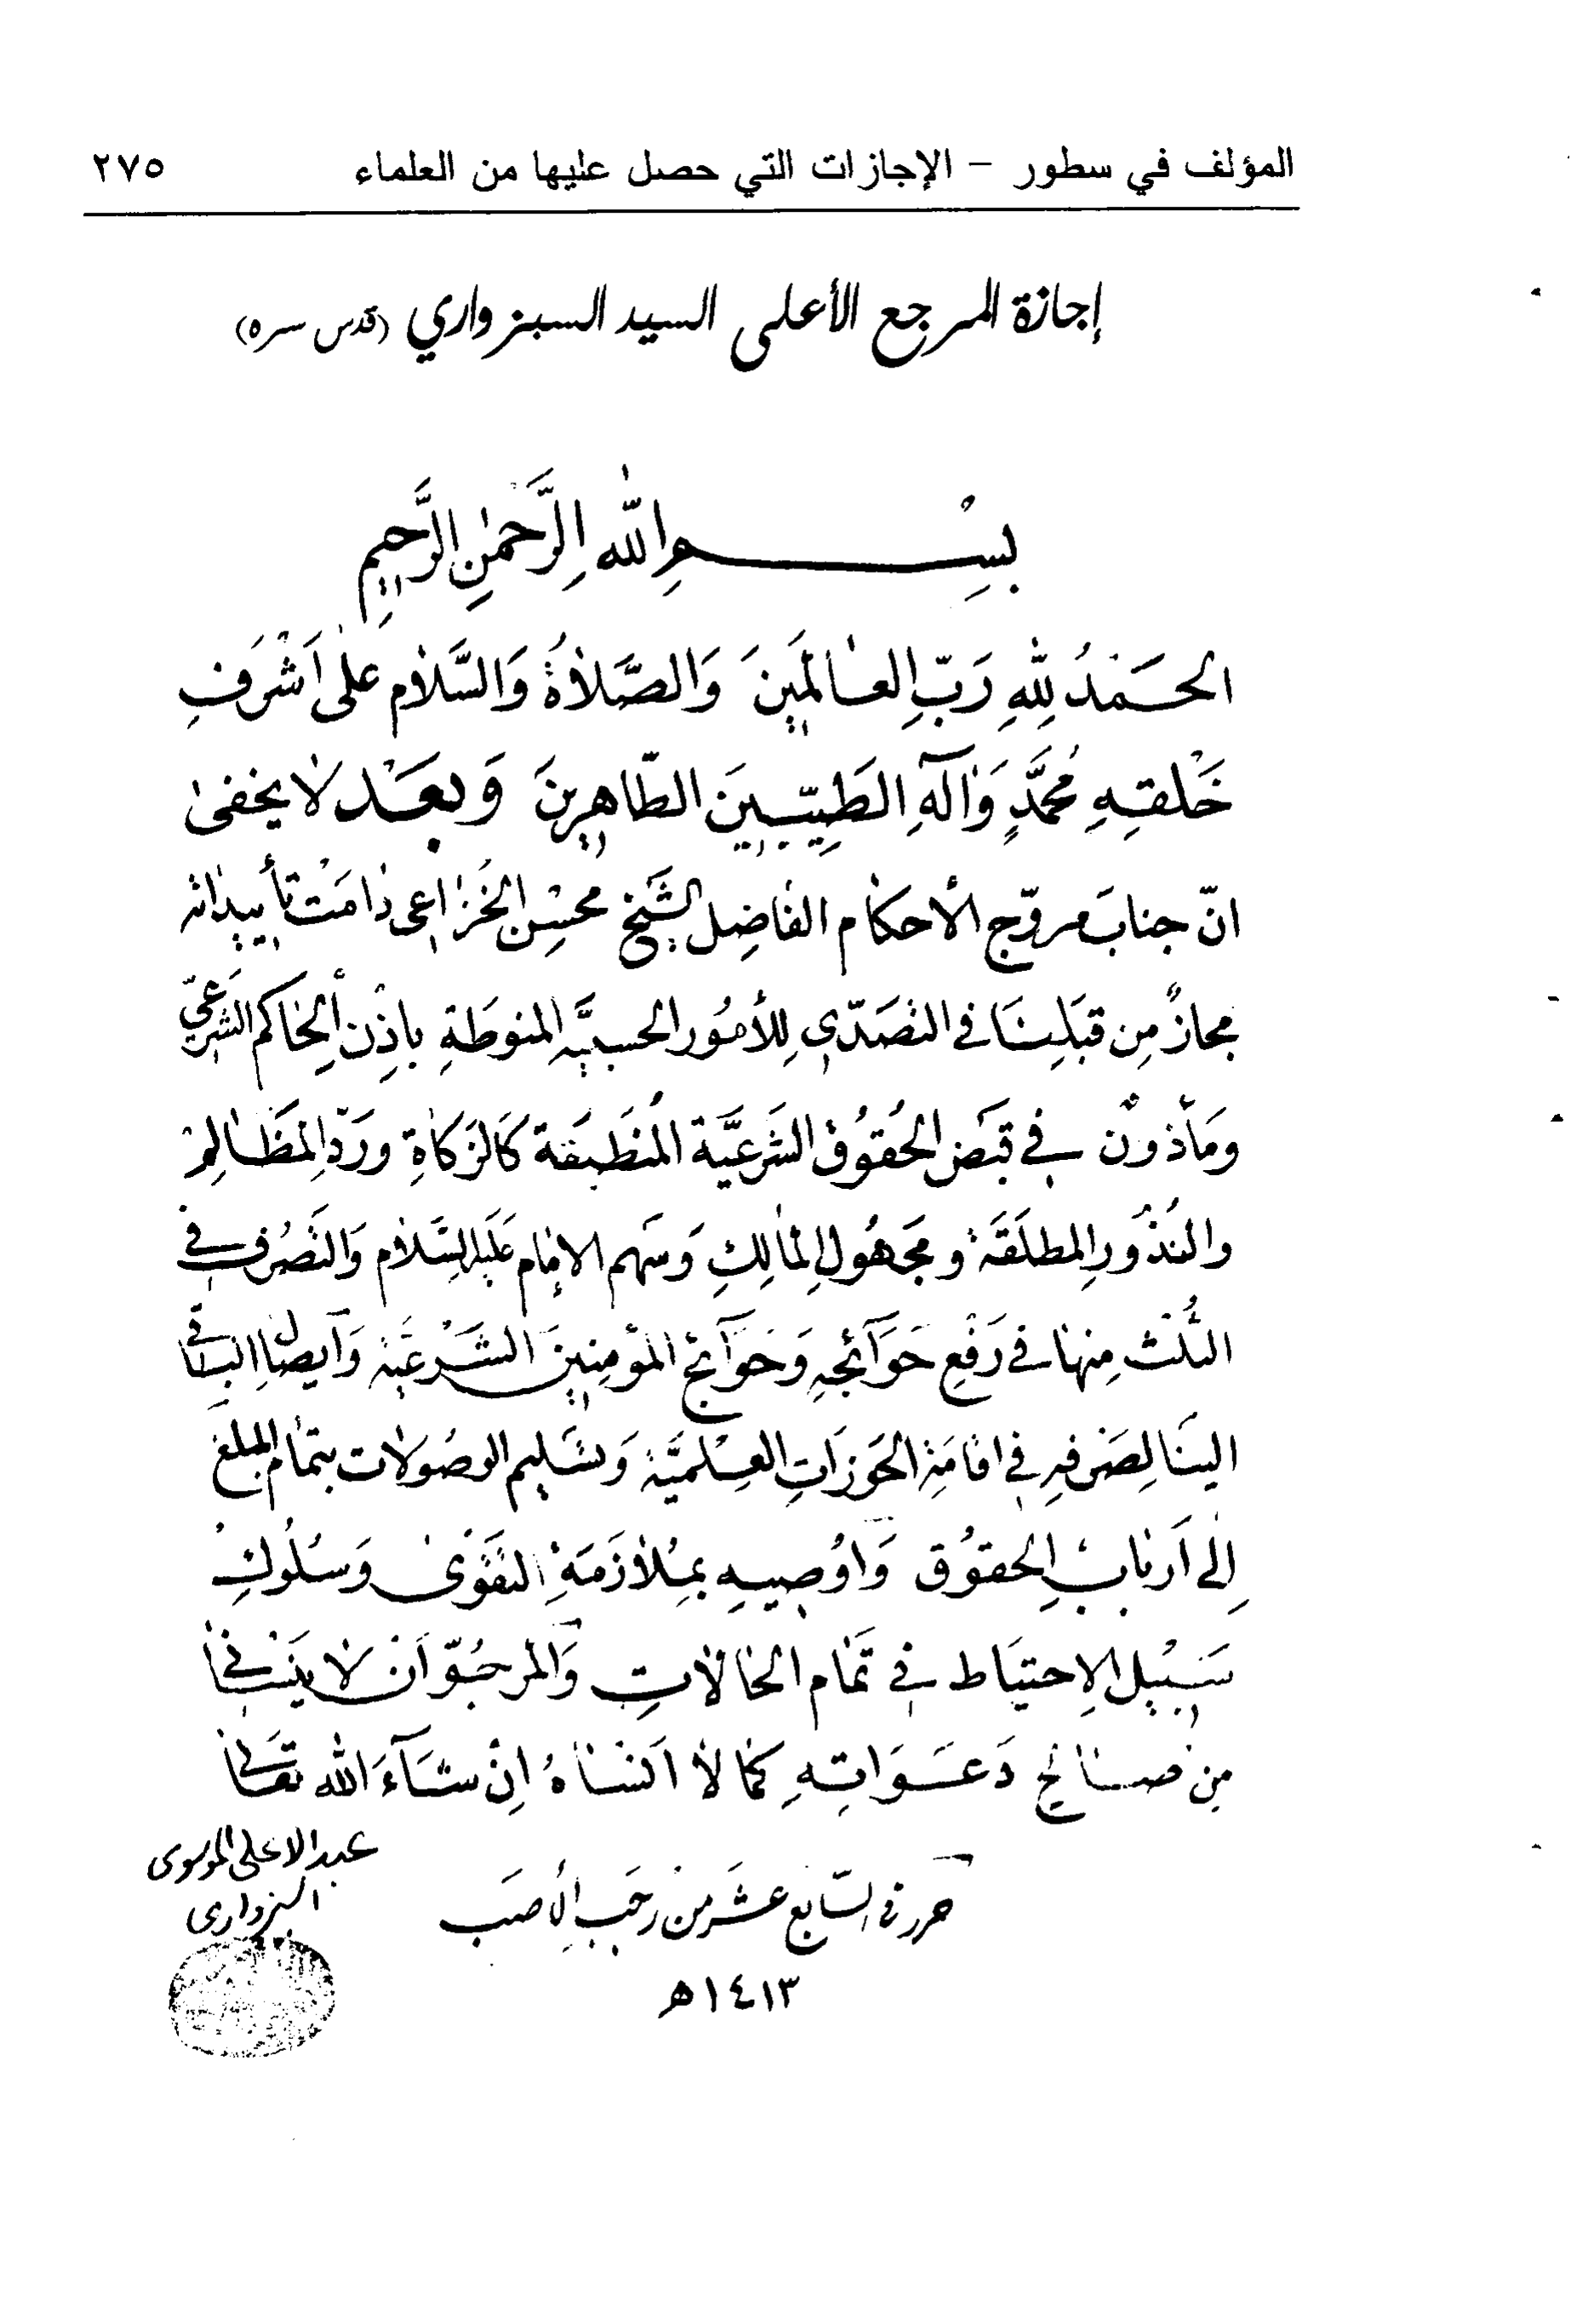 المؤلف في سطور – الإجازات التي حصل عليها من العلماء ٢٧٥
إجازة المرجع الأعلى السيد السبزواري (قدس سره)
بِسْمِ اللهِ الرَّحْمٰنِ الرَّحِيمِ
الحَمْدُ لِلّٰهِ رَبِّ العَالَمِينَ وَالصَّلَاةُ وَالسَّلَام عَلٰى اَشْرَفِ
خَلْقِهِ مُحَمَّدٍ وَآلِهِ الطَيِّبِينَ الطّاهِرِينَ وَبعَدْ لا يخفىٰ
انّ جنابَ مروّج الأحكام الفاضِل الشَيخ محسِن الخُزاعى دامَت تأييداته
مجازٌ مِن قبَلِنَا في التصَدّي لِلأمُور الحسبيَّة المنوطَةِ بإذِن الحاكم الشَرعيّ
ومَأذون في قبَض الحُقوُق الشَرعيَّة المُنطَبقَة كَالزكاةِ ورَدّ المَظالِم
والنُذُورِ المطلقَة ومَجهُول المالِكِ وَسَهم الامام عَلَيهِ السَّلام وَالتصَرُف في
الثُلث مِنها في رَفعِ حَوَآئجِهِ وَحَوَآئج المؤمِنينَ الشَرعيَّة وَآيصالِ الباقي
الينَا لِصَرفِهِ في اقامَة الحَوزَاتِ العِلميَّة وَتسَليم الوصُولات بتمام المبلغ
إلى اَربابِ الحقوُق وَاوُصيهِ بمِلازَمَةِ التقَوىٰ وَسُلُوكِ
سَبيْل الاِحتيَاط في تمَام الحالاتِ وَالمرجُوّ اَن لا ينَساني
مِن صالح دَعَوَاتِهِ كما لا اَنسَاهُ اِن شَآءَ الله تعَالى
عبد الاعلى الموسوى
السبزوارى
حرر في السّابع عشَر من رجَبِ الأصَب
١٤١٣ هـ